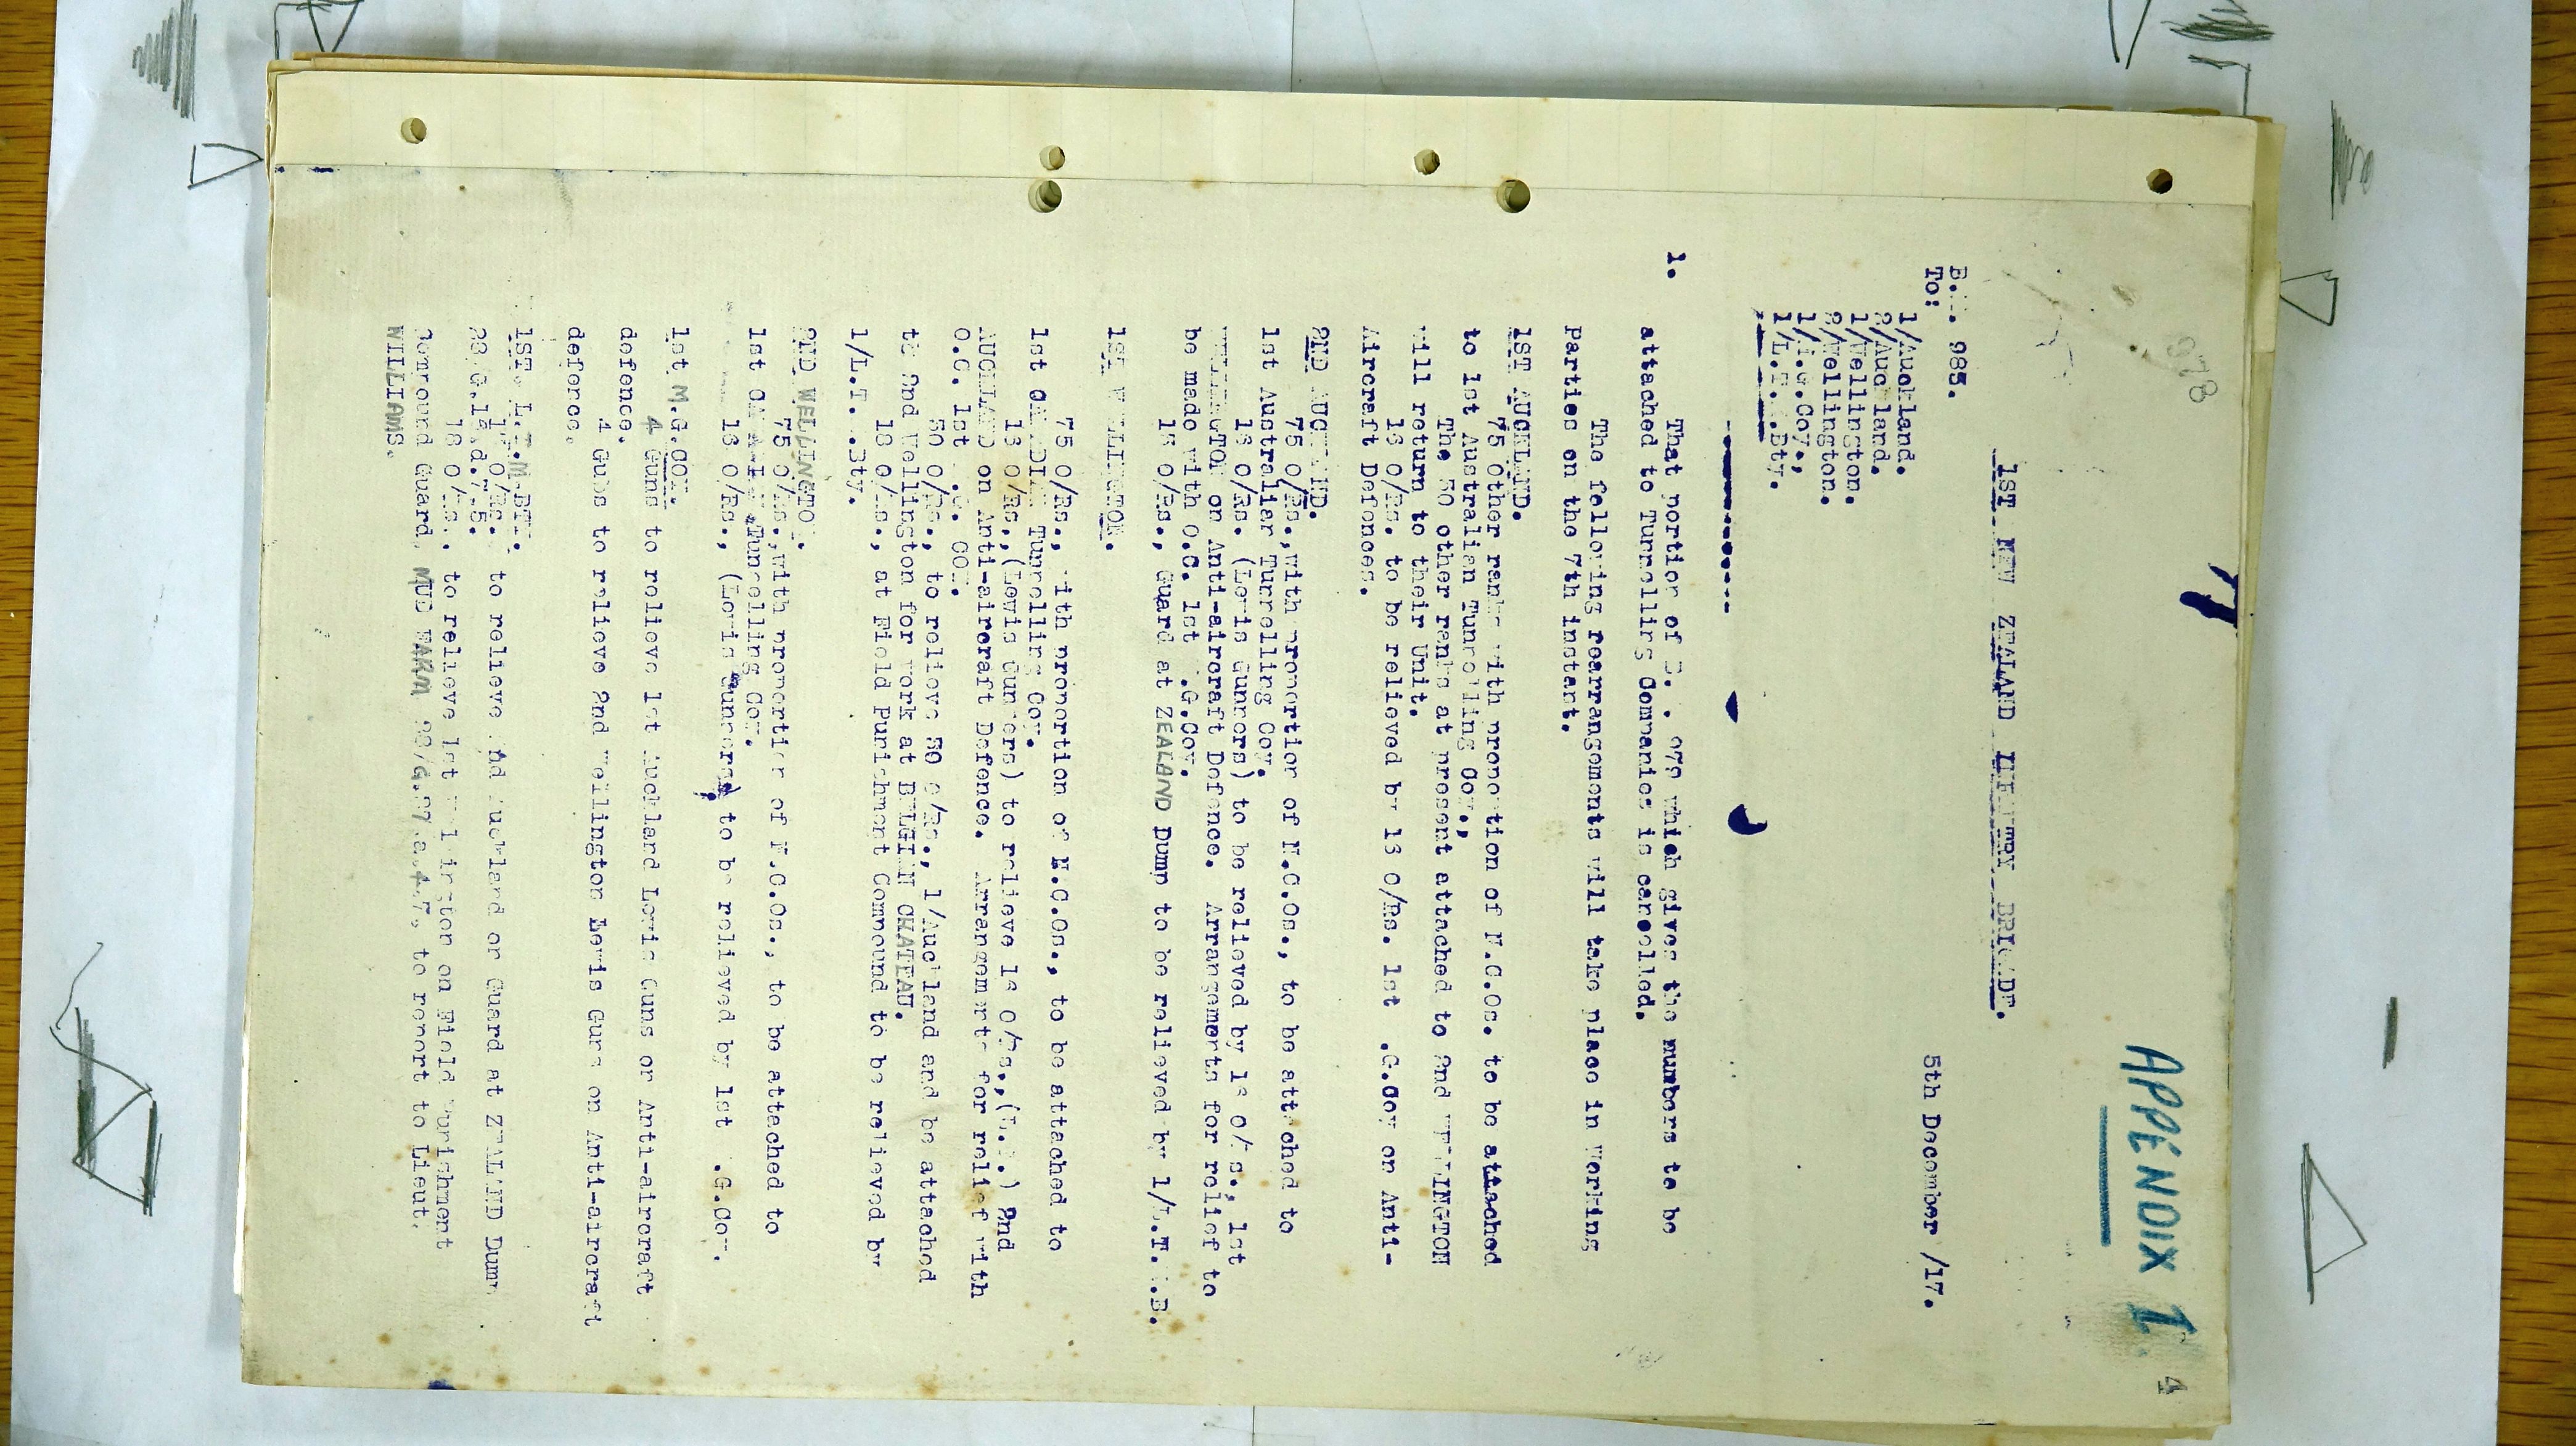 APPENDIX 1.
4
978
1ST NEW ZEALAND INFANTRY BRIGADE.
5th December /17.
B. 985.
To:
1/Auckland.
2/Auckland.
1/Wellington.
2/Wellington.
1/M.G.Coy.,
1/L.T.M.Bty.
1. That portion of 979 which gives the numbers to be
attached to Tunnelling Companies is cancelled.
The following rearrangements will take place in Working
Parties on the 7th instant.
1ST AUCKLAND.
75 Other ranks with proportion of N.C.Os. to be attached
to 1st Australian Tunnelling Coy.,
The 50 other ranks at present attached to 2nd WELLINGTON
will return to their Unit.
13 O/Rs. to be relieved by 13 O/Rs. 1st M.G.Coy on Anti-
Aircraft Defences.
2ND AUCKLAND.
75 O/Rs., with proportion of N.C.Os., to be attached to
1st Australian Tunnelling Coy.
13 O/Rs. (Lewis Gunners) to be relieved by 13 O/Rs., 1st
WELLINGTON on Anti-aircraft Defence. Arrangements for relief to
be made with O.C. 1st M.G.Coy.
18 O/Rs., Guard at ZEALAND Dump to be relieved by 1/L.T.M.B.
1ST WELLINGTON.
75 O/Rs., with proportion of N.C.Os., to be attached to
1st CANADIAN Tunnelling Coy.
13 O/Rs., (Lewis Gunners) to relieve 13 O/Rs., 2nd
AUCKLAND on Anti-aircraft Defence. Arrangements for relief with
O.C. 1st M.G. COY.
50 O/Rs., to relieve 50 O/Rs., 1/Auckland and be attached
to 2nd Wellington for work at BELGIAN CHATEAU.
18 O/Rs., at Field Punishment Compound to be relieved by
1/L.T.M.Bty.
2ND WELLINGTON.
75 O/Rs., with proportion of N.C.Os., to be attached to
1st CANADIAN Tunnelling Coy.
13 O/Rs., (Lewis Gunners) to be relieved by 1st M.G.Coy.
1st M.G.COY.
4 Guns to relieve 1st Auckland Lewis Guns on Anti-aircraft
defence.
4 Guns to relieve 2nd Wellington Lewis Guns on Anti-aircraft
defence.
1ST. L.T.M.BTY.
18 O/Rs. to relieve 2nd Auckland on Guard at ZEALAND Dump
18 O/Rs., to relieve 1st Wellington on Field Punishment
Compound Guard, MUD FARM to report to Lieut.
WILLIAMS.